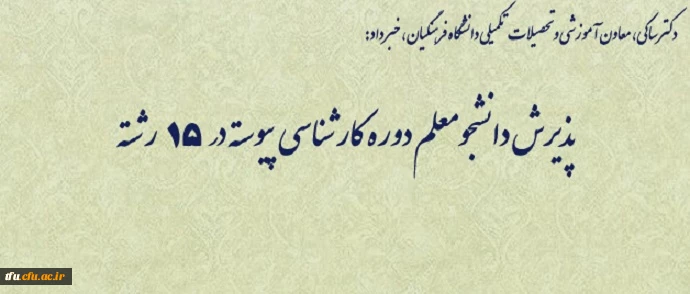 دکتر ساکی، معاون آموزشی و تحصیلات تکمیلی دانشگاه فرهنگیان، خبر داد:
پذیرش دانشجو معلم دوره کارشناسی پیوسته در ۱۵ رشته
tfu.cfu.ac.ir